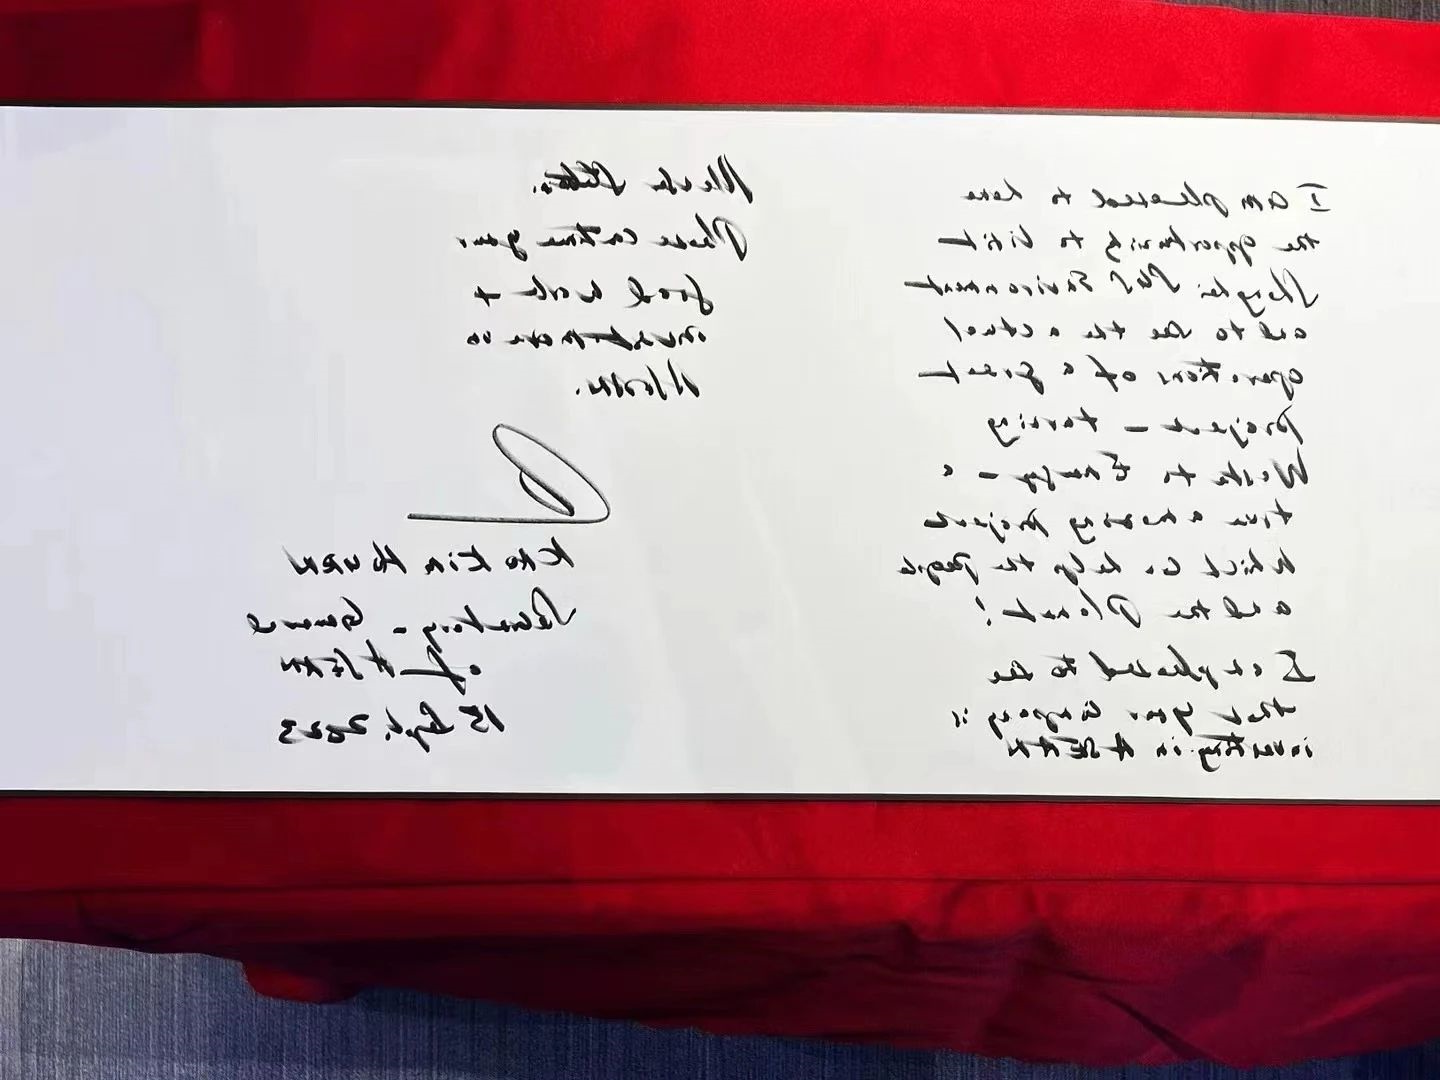 I am pleased to have
the opportunity to visit
Shanghai SUS Environment
and to see the actual
operations of a great
project – turning
Waste to Energy – a
true amazing project
which will help the people
and the Planet!
I am pleased to see
that your company is
investing in ASEAN
Member States.
Please continue your
good work +
invest more in
ASEAN.
KAO KIM HOURN
Secretary-General
of ASEAN
15 Sept. 2023